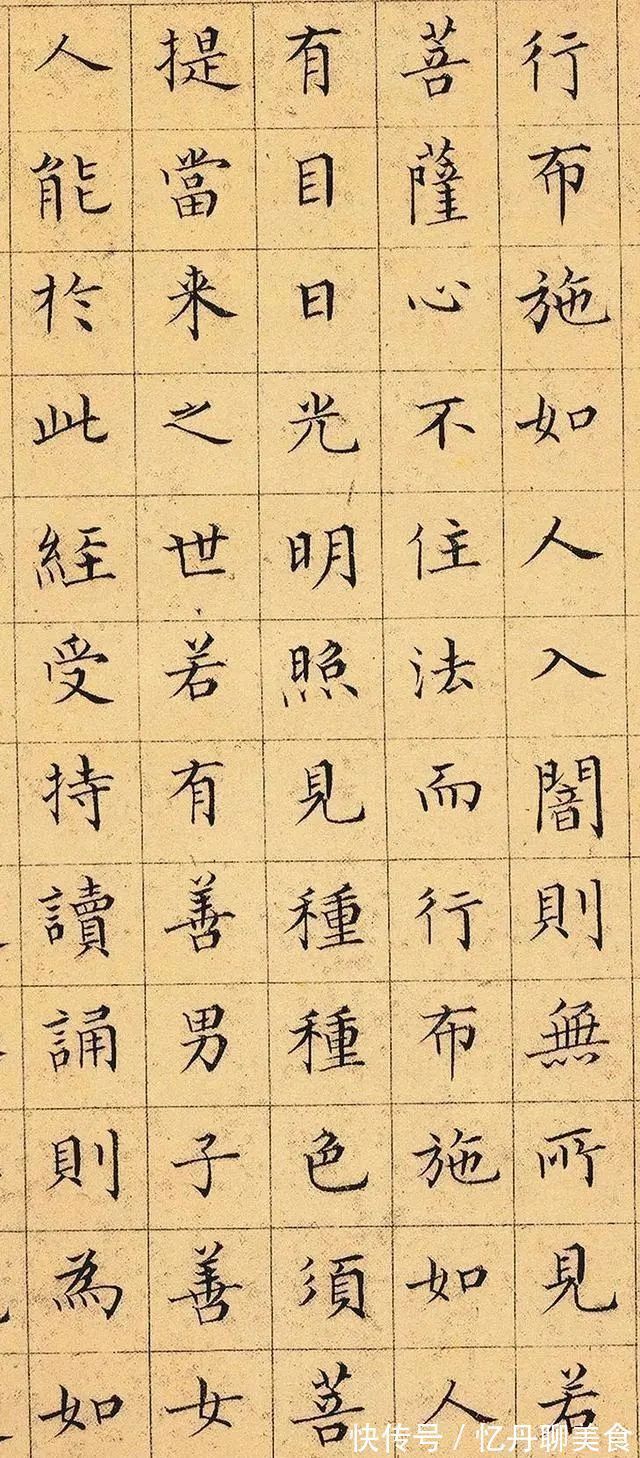 行布施如人入闇則無所見若
菩薩心不住法而行布施如人
有目日光明照見種種色須菩
提當来之世若有善男子善女
人能於此經受持讀誦則為如
快传号/忆丹聊美食